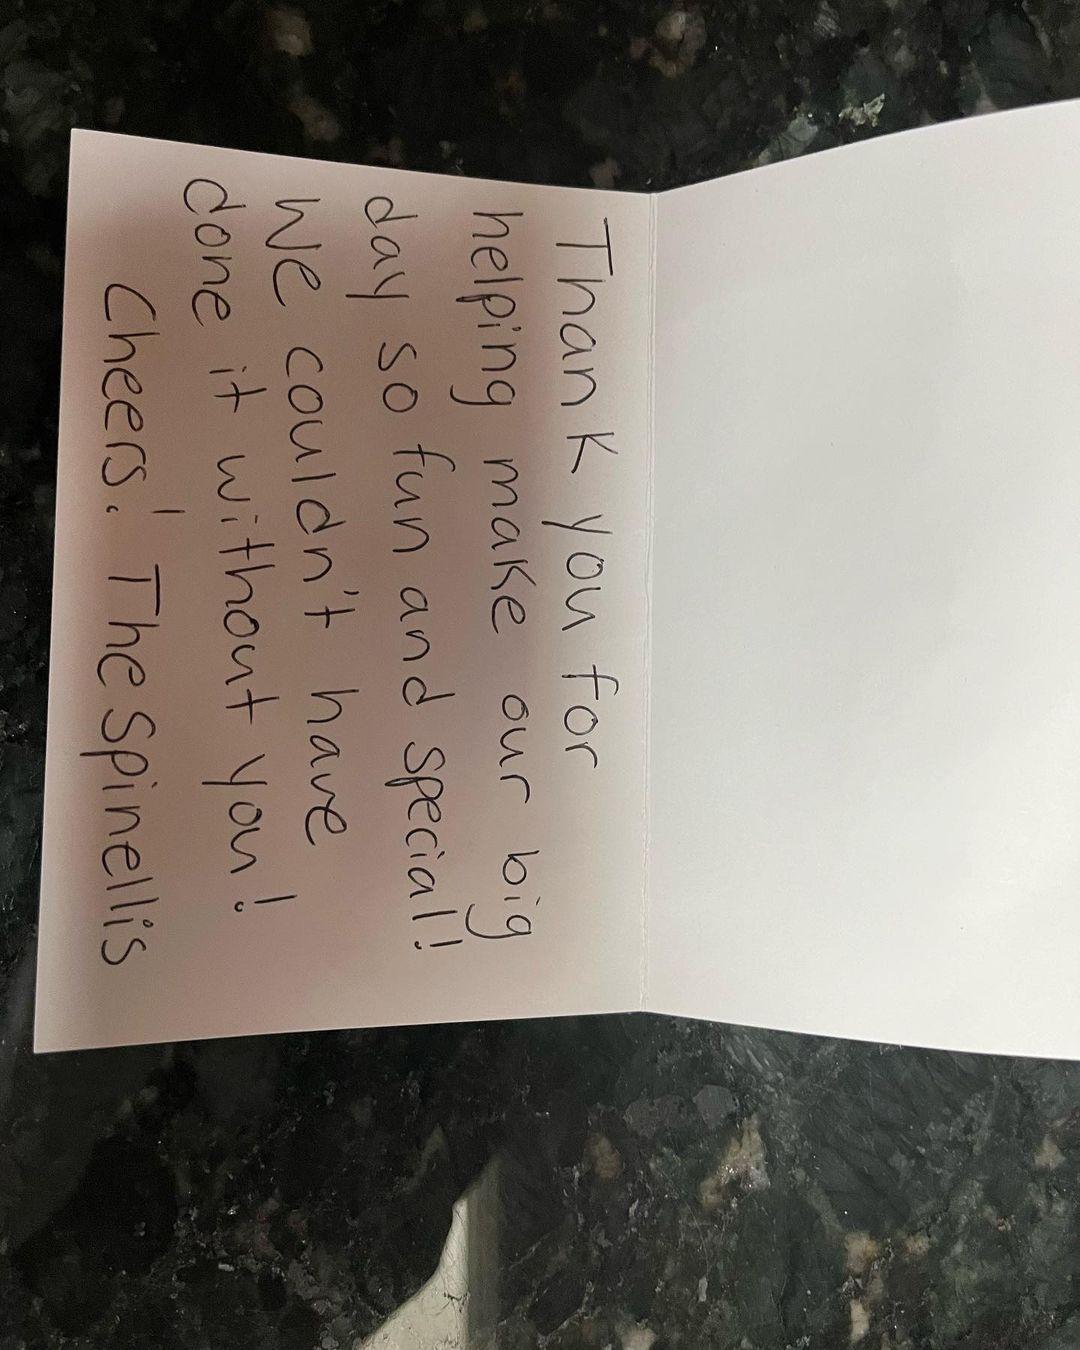 Thank you for
helping make our big
day so fun and special!
We couldn't have
done it without you!
Cheers! The Spinellis